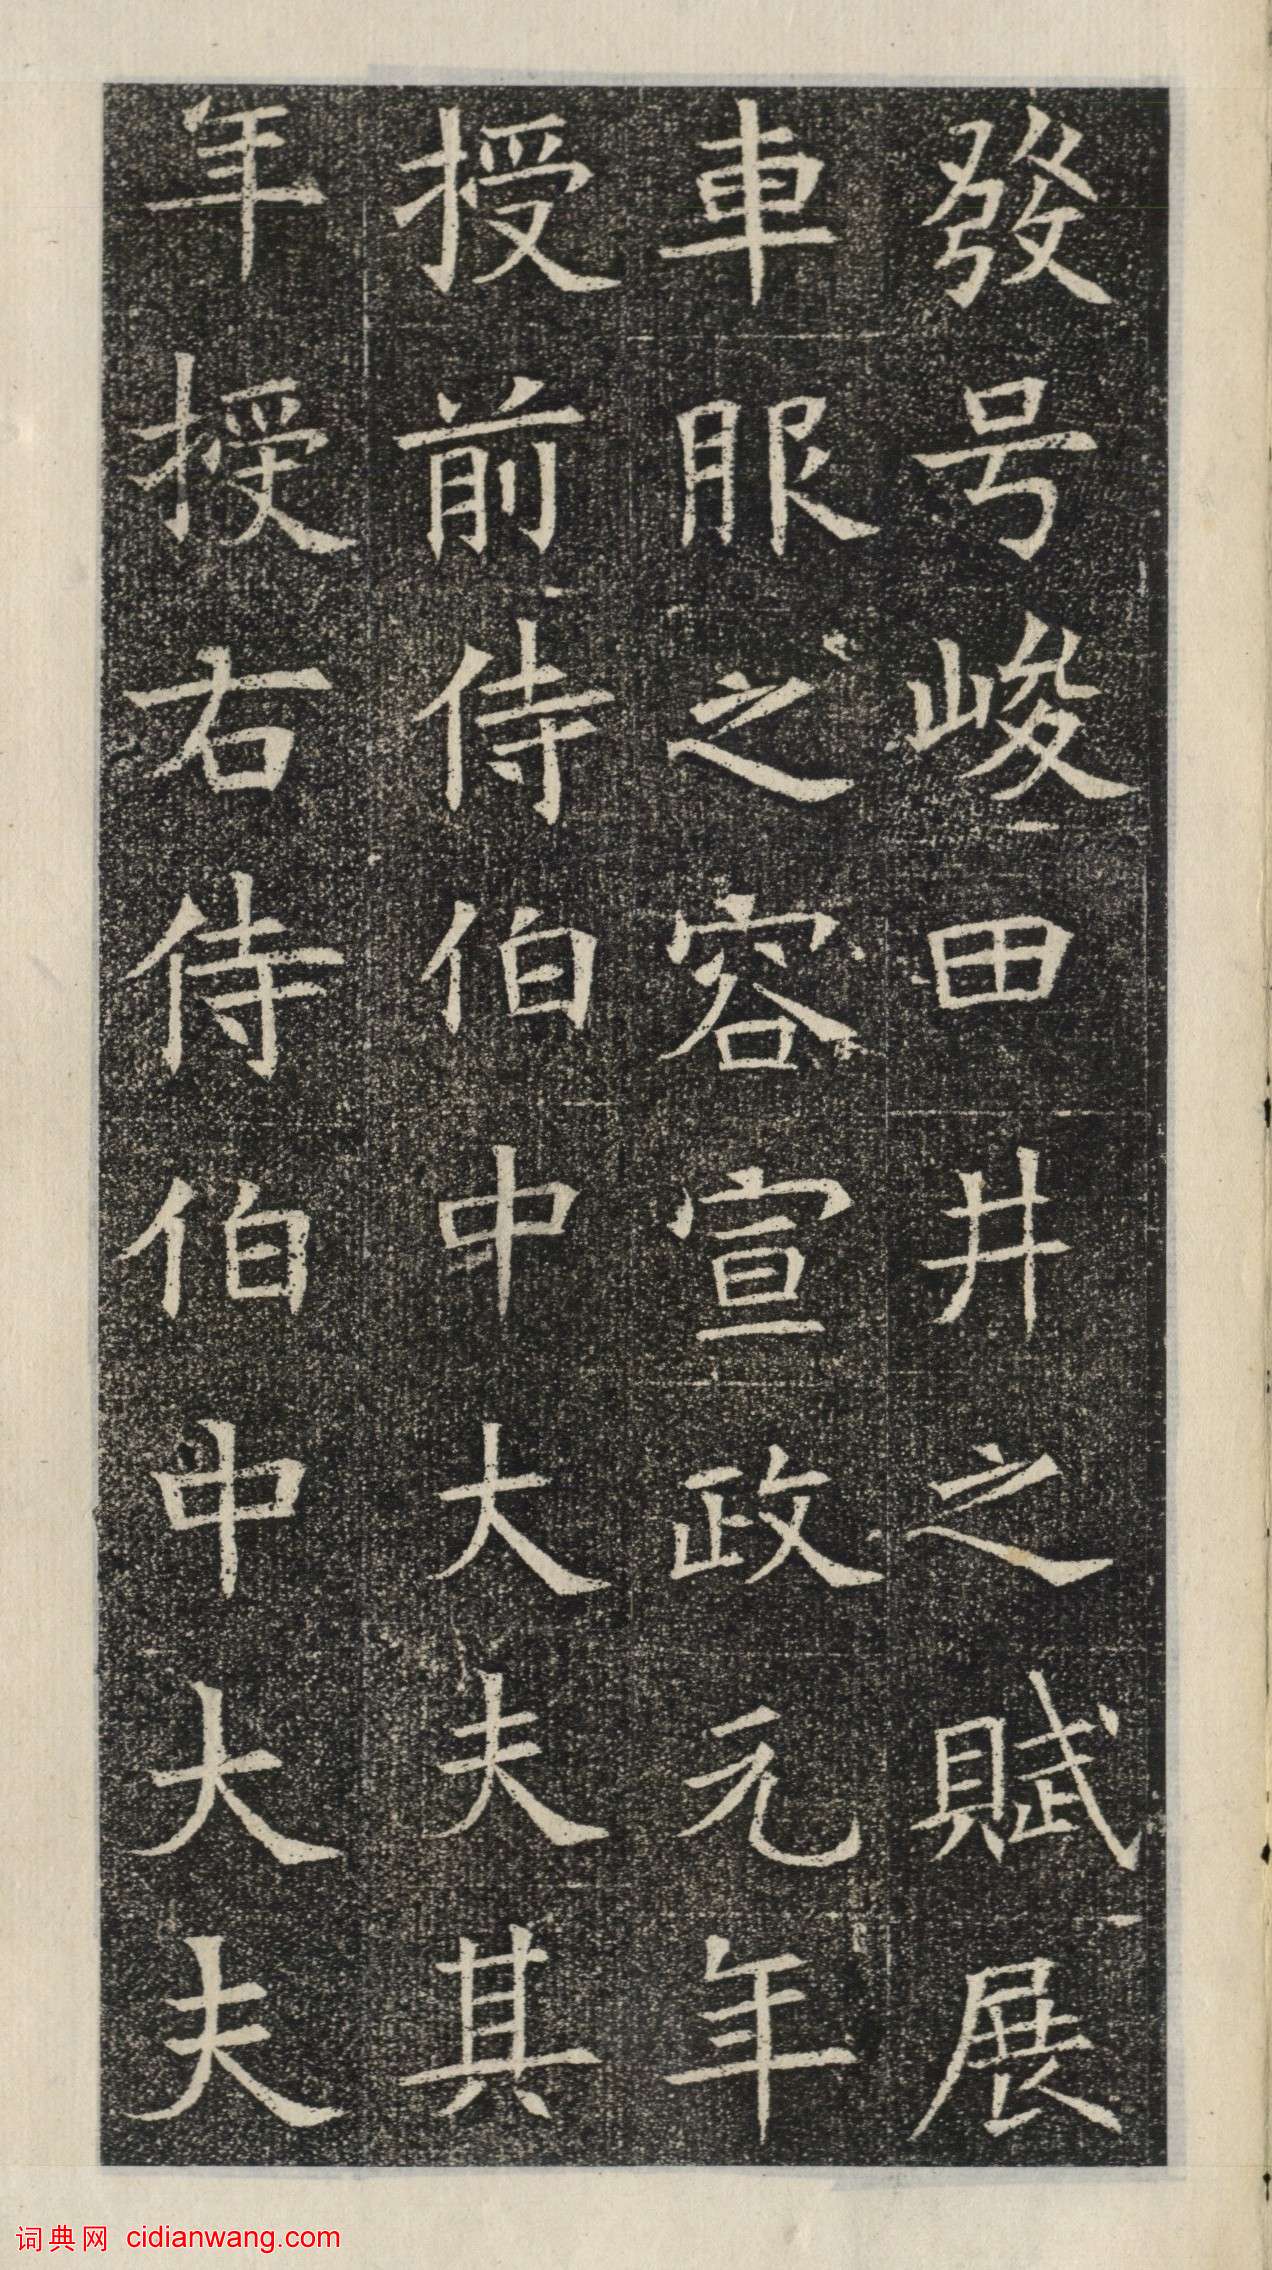 發号峻田井之賦展
車服之容宣政元年
授前侍伯中大夫其
年授右侍伯中大夫
词典网 cidianwang.com